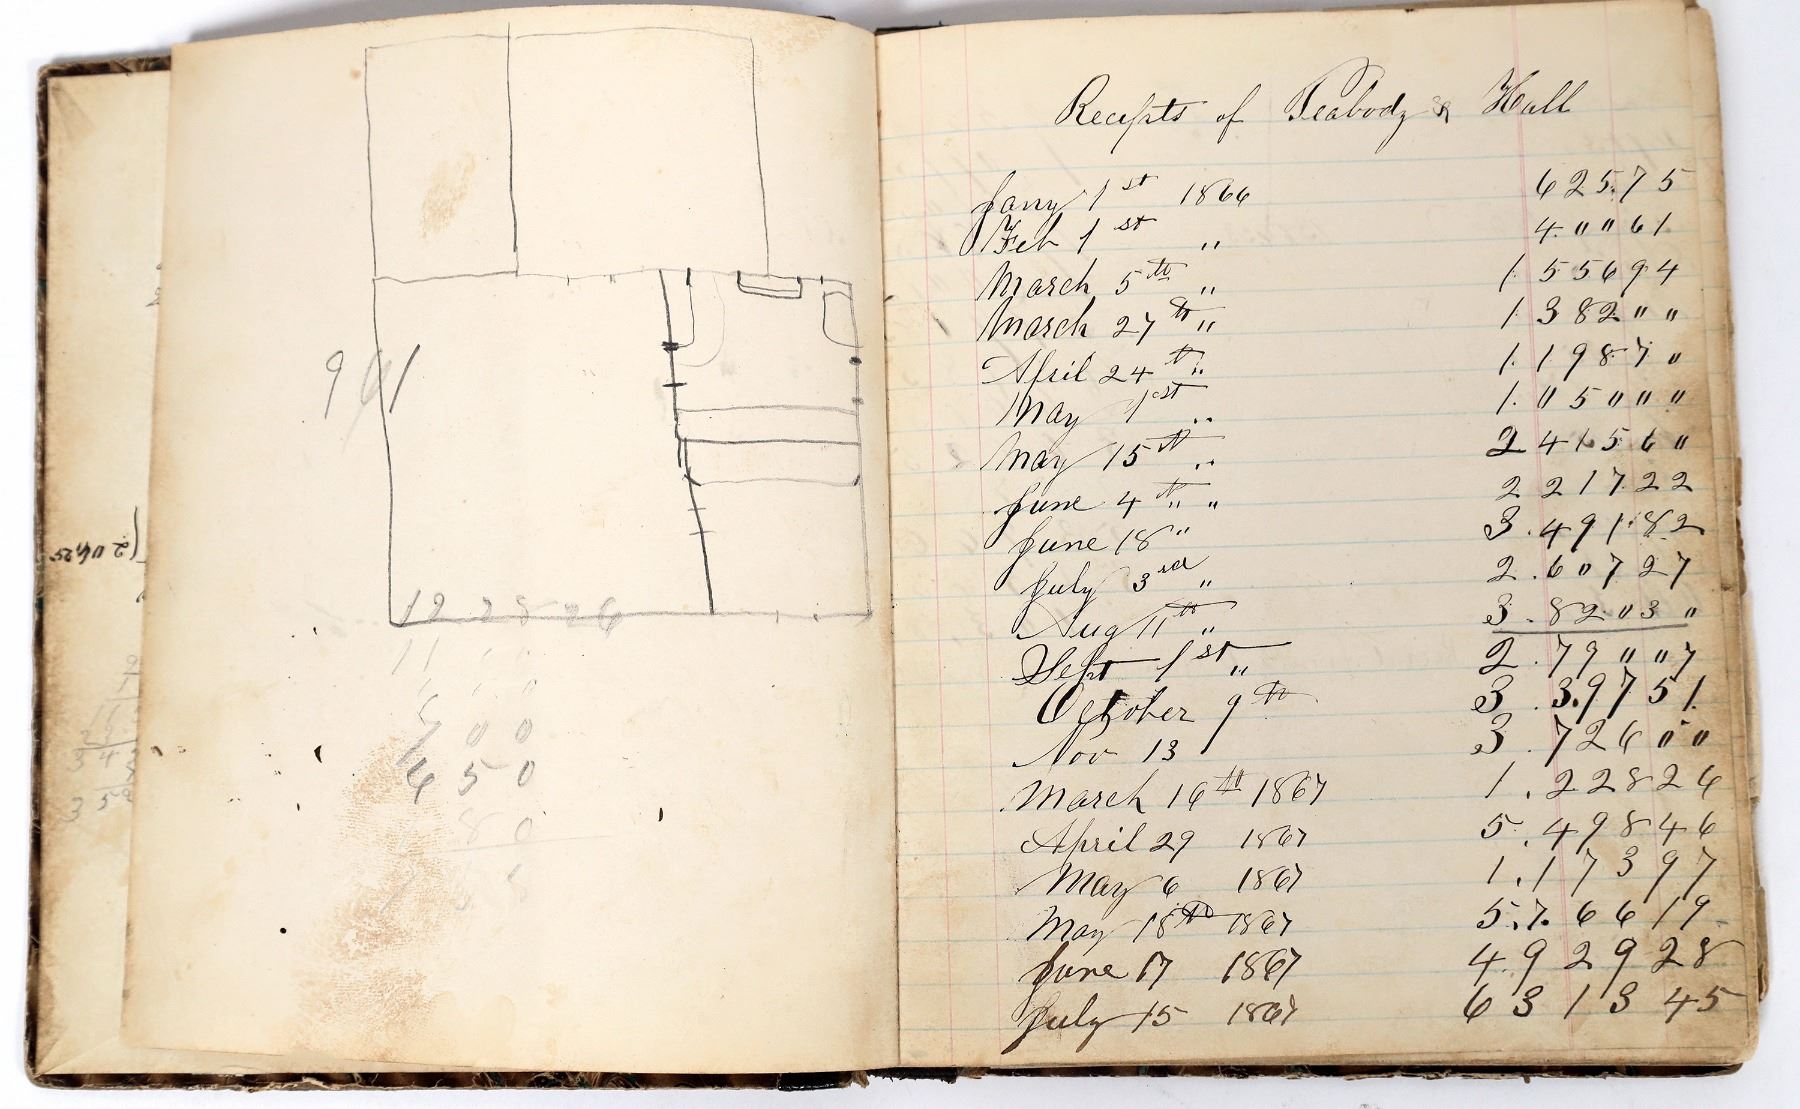 9 01
12 28 26
11
700
650
80
(204.25
Receipts of Peabody & Hall
Jany 1st 1866 625.75
Feb 1st " 4.""61
March 5th " 1.55694
March 27th " 1.382""
April 24th " 1.1987"
May 1st " 1."5"""
May 15th " 2 4156"
June 4th " " 2 21722
June 18" 3.49182
July 3rd " 2.6"727
Aug 11th " 3.82"3"
Sept 1st " 2.79""7
October 9th 3 3.9751
Nov 13 3.726""
March 16th 1867 1.22826
April 29 1867 5.49846
May 6 1867 1.17397
May 18th 1867 5.7.6619
June 17 1867 4.92928
July 15 1867 631345